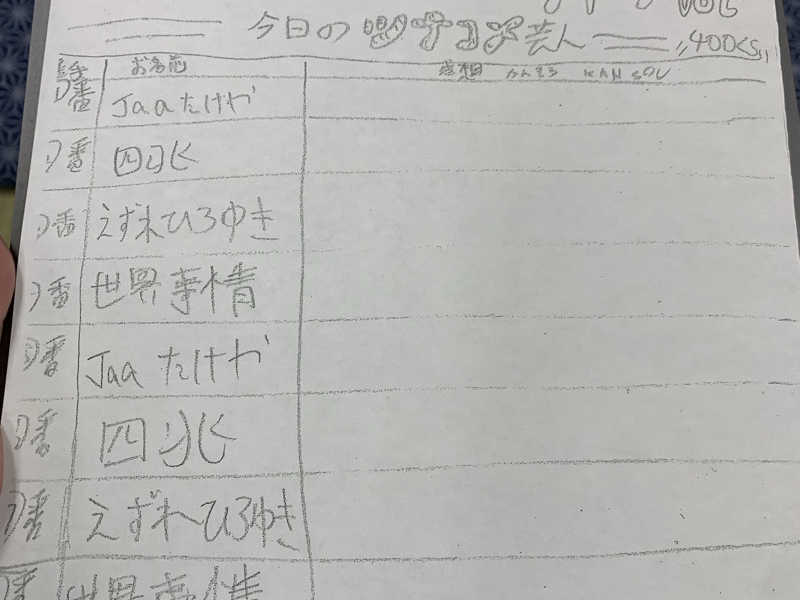 今日の 芸人
お名前 感想 かんそう KAN SOU
番 Jaaたけや
番 四氷
番 えずれひろゆき
番 世界事情
番 Jaa たけや
番 四氷
番 えずれひろゆき
番 世界事情